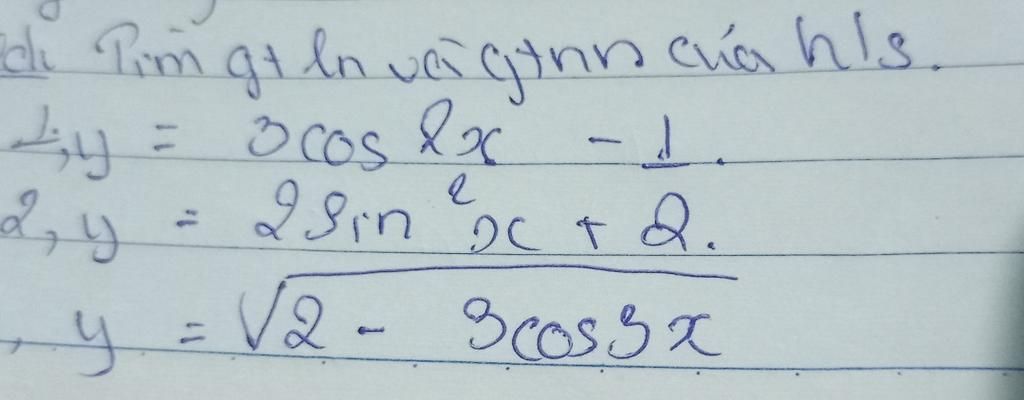 Tìm gt ln và gtnn của h/s.
1, y = 3cos 2x - 1.
2, y = 2sin²x + 2.
, y = √2 - 3cos3x